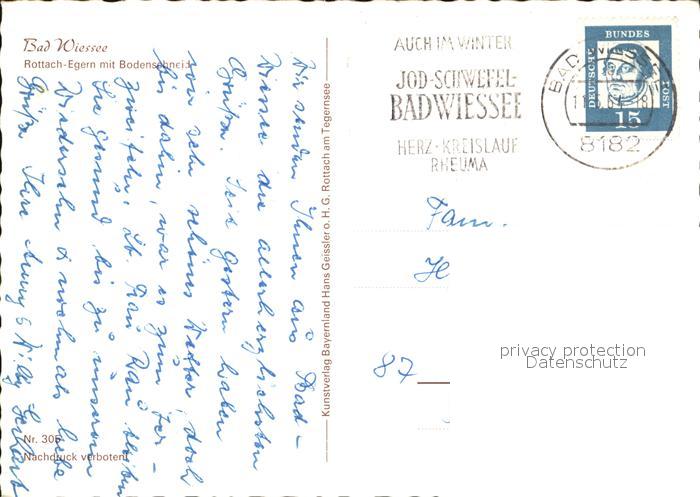 Bad Wiessee
Rottach-Egern mit Bodenschneid
Wir senden Ihnen aus Bad-
Wiessee die allerherzlichsten
Grüße. Seit gestern haben
wir sehr schönes Wetter, doch
bis dahin, war es zum
Lb. Frau bleiben
Sie gesund bis zu unserem
Wiedersehn & nochmals liebe
Grüße Ihre & Willy
Nr. 305
Nachdruck verboten!
Kunstverlag Bayernland Hans Geissler o. H. G. Rottach am Tegernsee
AUCH IM WINTER
JOD-SCHWEFEL-
BAD WIESSEE
HERZ-KREISLAUF
RHEUMA
BAD WIESSEE
8182
DEUTSCHE
BUNDES
POST
15
Fam.
H
87
privacy protection
Datenschutz